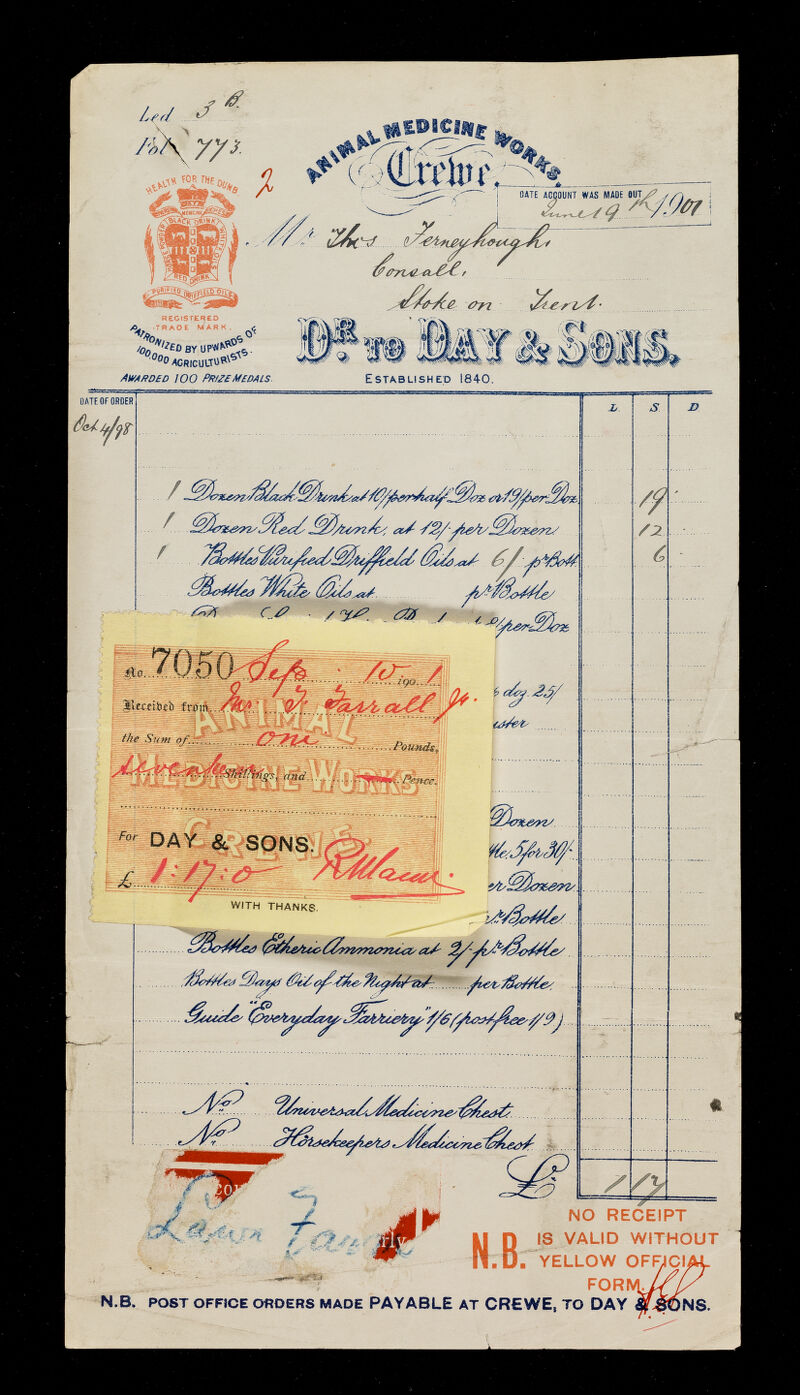 Led 3 B.
Fol 773.
2
ANIMAL MEDICINE WORKS,
Crewe.
DATE ACCOUNT WAS MADE OUT
June 19th 1901
HEALTH FOR THE DUMB
BLACK DRINK
WHITE OILS
RED DRINK
PURIFIED DRIFFIELD OILS
REGISTERED
TRADE MARK.
PATRONIZED BY UPWARDS OF
100,000 AGRICULTURISTS.
AWARDED 100 PRIZE MEDALS.
Mr Thos Ferneyhough,
Consall,
Stoke on Trent.
DR. TO DAY & SONS.
ESTABLISHED 1840.
DATE OF ORDER
L. S. D
Oct 4/98
1 Dozen Black Drink at 10/ per half Doz or 19/ per Doz. 19
1 Dozen Red Drink, at 12/- per Dozen 12
1 Bottles Purified Driffield Oils at 6/ pr Bott 6
Bottles White Oils at pr Bottle
/per Doz
No. 7050 Sep 10 1901
Received from Mr T. Farrall Jr.
the Sum of one Pounds,
seventeen Shillings, and — Pence.
ANIMAL
MEDICINE WORKS
CREWE.
For DAY & SONS.
£ 1:17:0
WITH THANKS.
doz. 25/
Dozen
5 for 30/-
er Dozen
pr. Bottle
Bottles Etheric Ammonia at 2/- pr. Bottle
Bottles Days Oil of the Night at per Bottle.
Guide "Everyday Farriery" 1/6 (post free 1/9)
No. Universal Medicine Chest.
No. Horsekeepers Medicine Chest.
£. 1 17
Lawn
rly
NO RECEIPT
N.B. IS VALID WITHOUT
YELLOW OFFICIAL
FORM.
N.B. POST OFFICE ORDERS MADE PAYABLE AT CREWE, TO DAY & SONS.